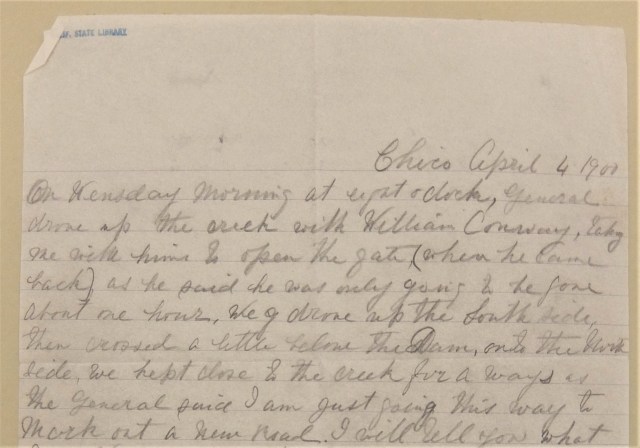 STATE LIBRARY
Chico April 4 1900
On Wensday Morning at eight oclock, General
drove up the creek with William Conway, takg
me with him to open the gate (when he came
back) as he said he was only going to be gone
about one hour, We drove up the South side
then crossed a little below the Dam, onto the North
side, we kept close to the creek for a ways as
the General said I am just going this way to
Mark out a new road. I will tell you what